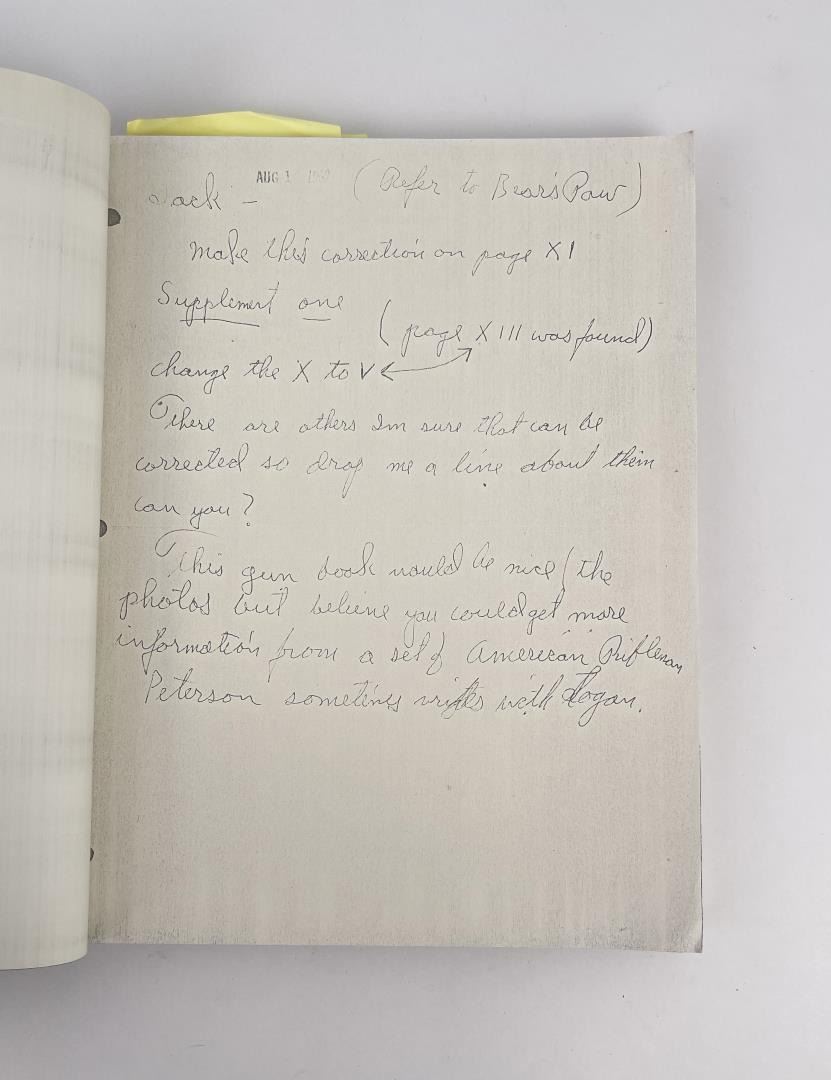 AUG 1
Jack – (Refer to Bear's Paw)
Make this correction on page XI
Supplement one
(page XIII was found)
change the X to V
There are others Im sure that can be
corrected so drop me a line about them
can you?
This gun book would be nice (the
photos but believe you could get more
information from a set of American Rifleman
Peterson sometimes writes with